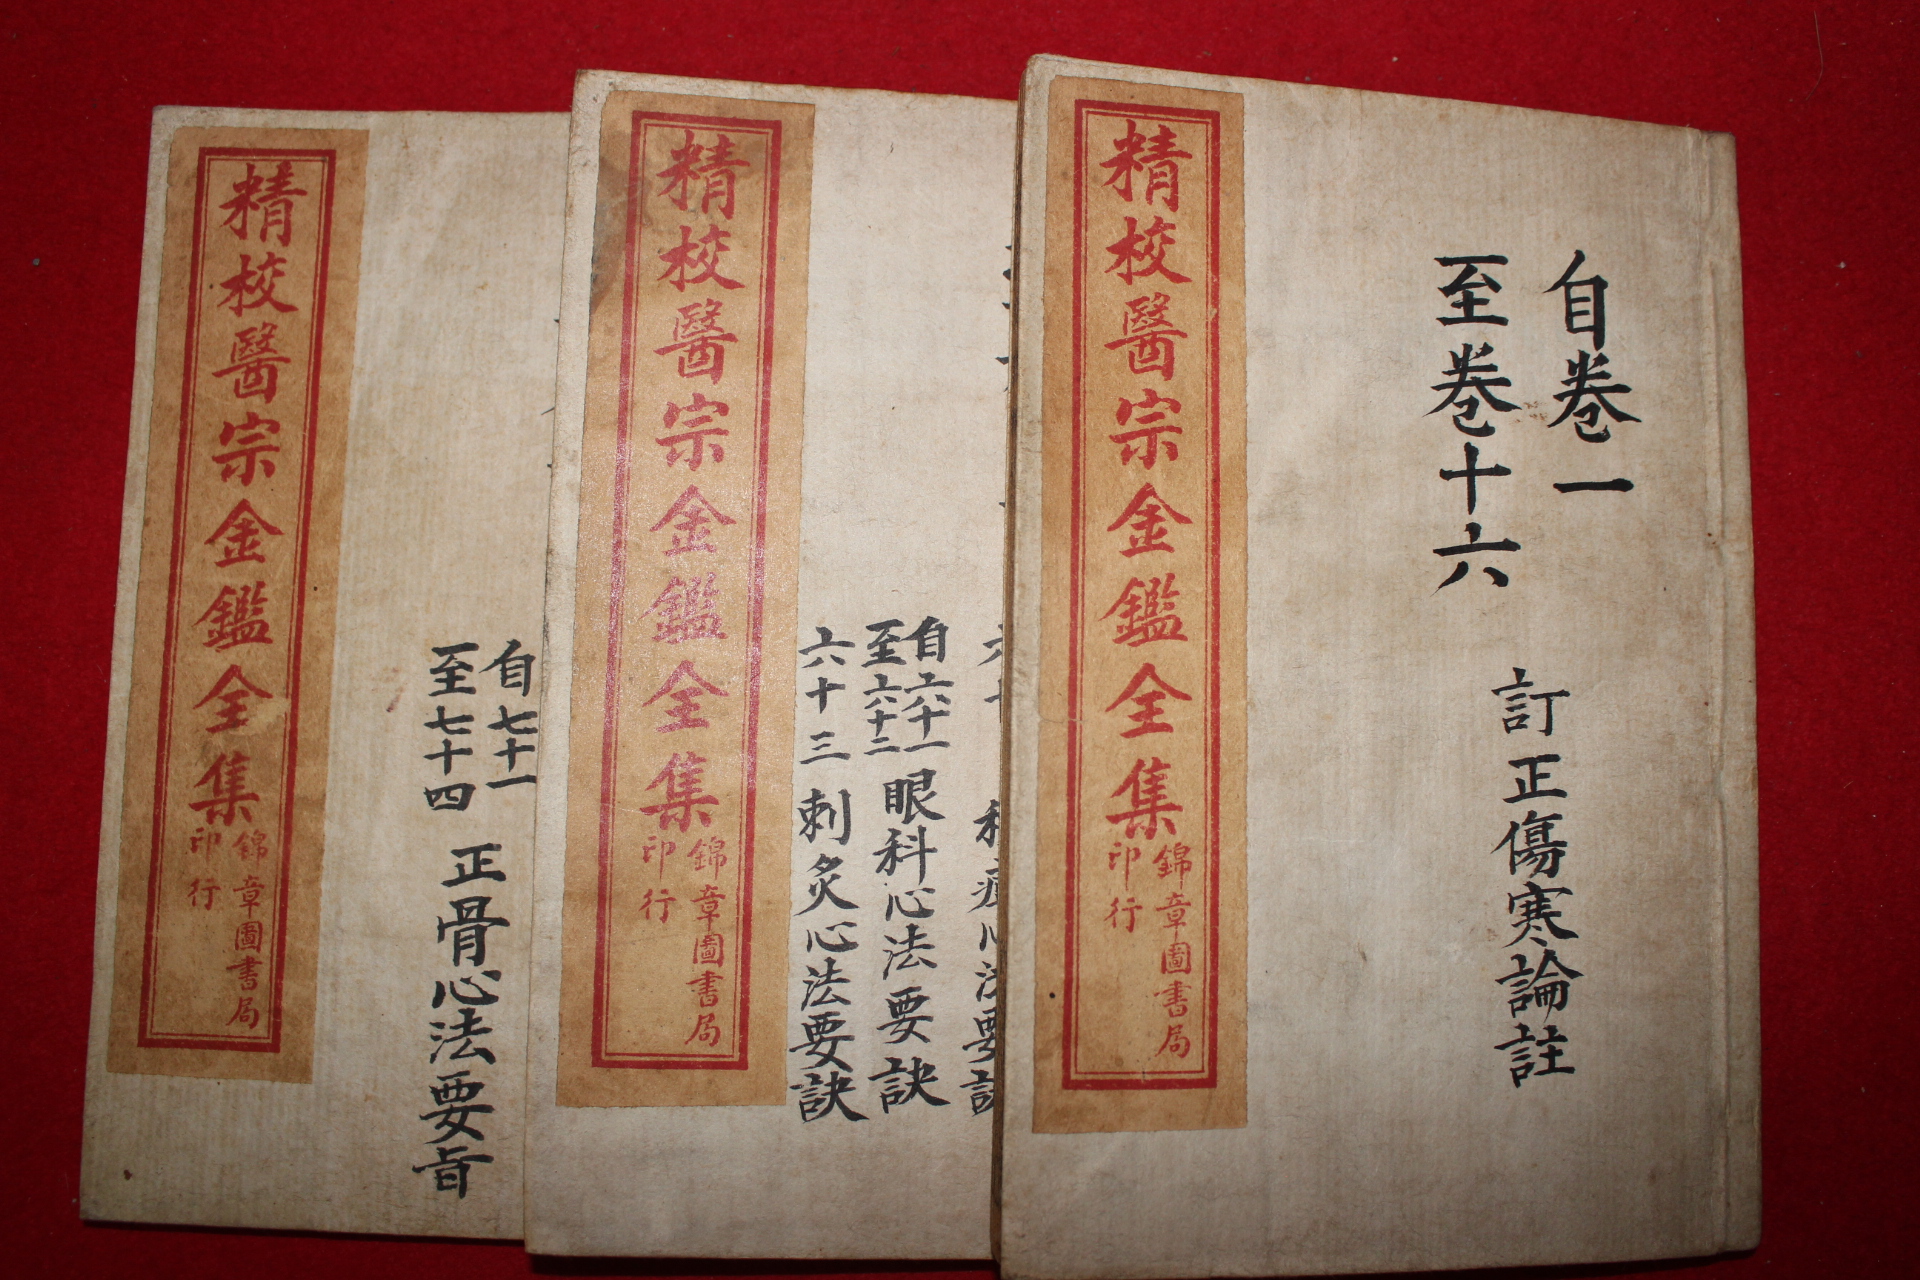 自卷一
至卷十六
訂正傷寒論註
精校醫宗金鑑全集
錦章圖書局
印行
自六十一
至六十二
眼科心法要訣
六十三 刺灸心法要訣
精校醫宗金鑑全集
錦章圖書局
印行
自七十一
至七十四
正骨心法要旨
精校醫宗金鑑全集
錦章圖書局
印行